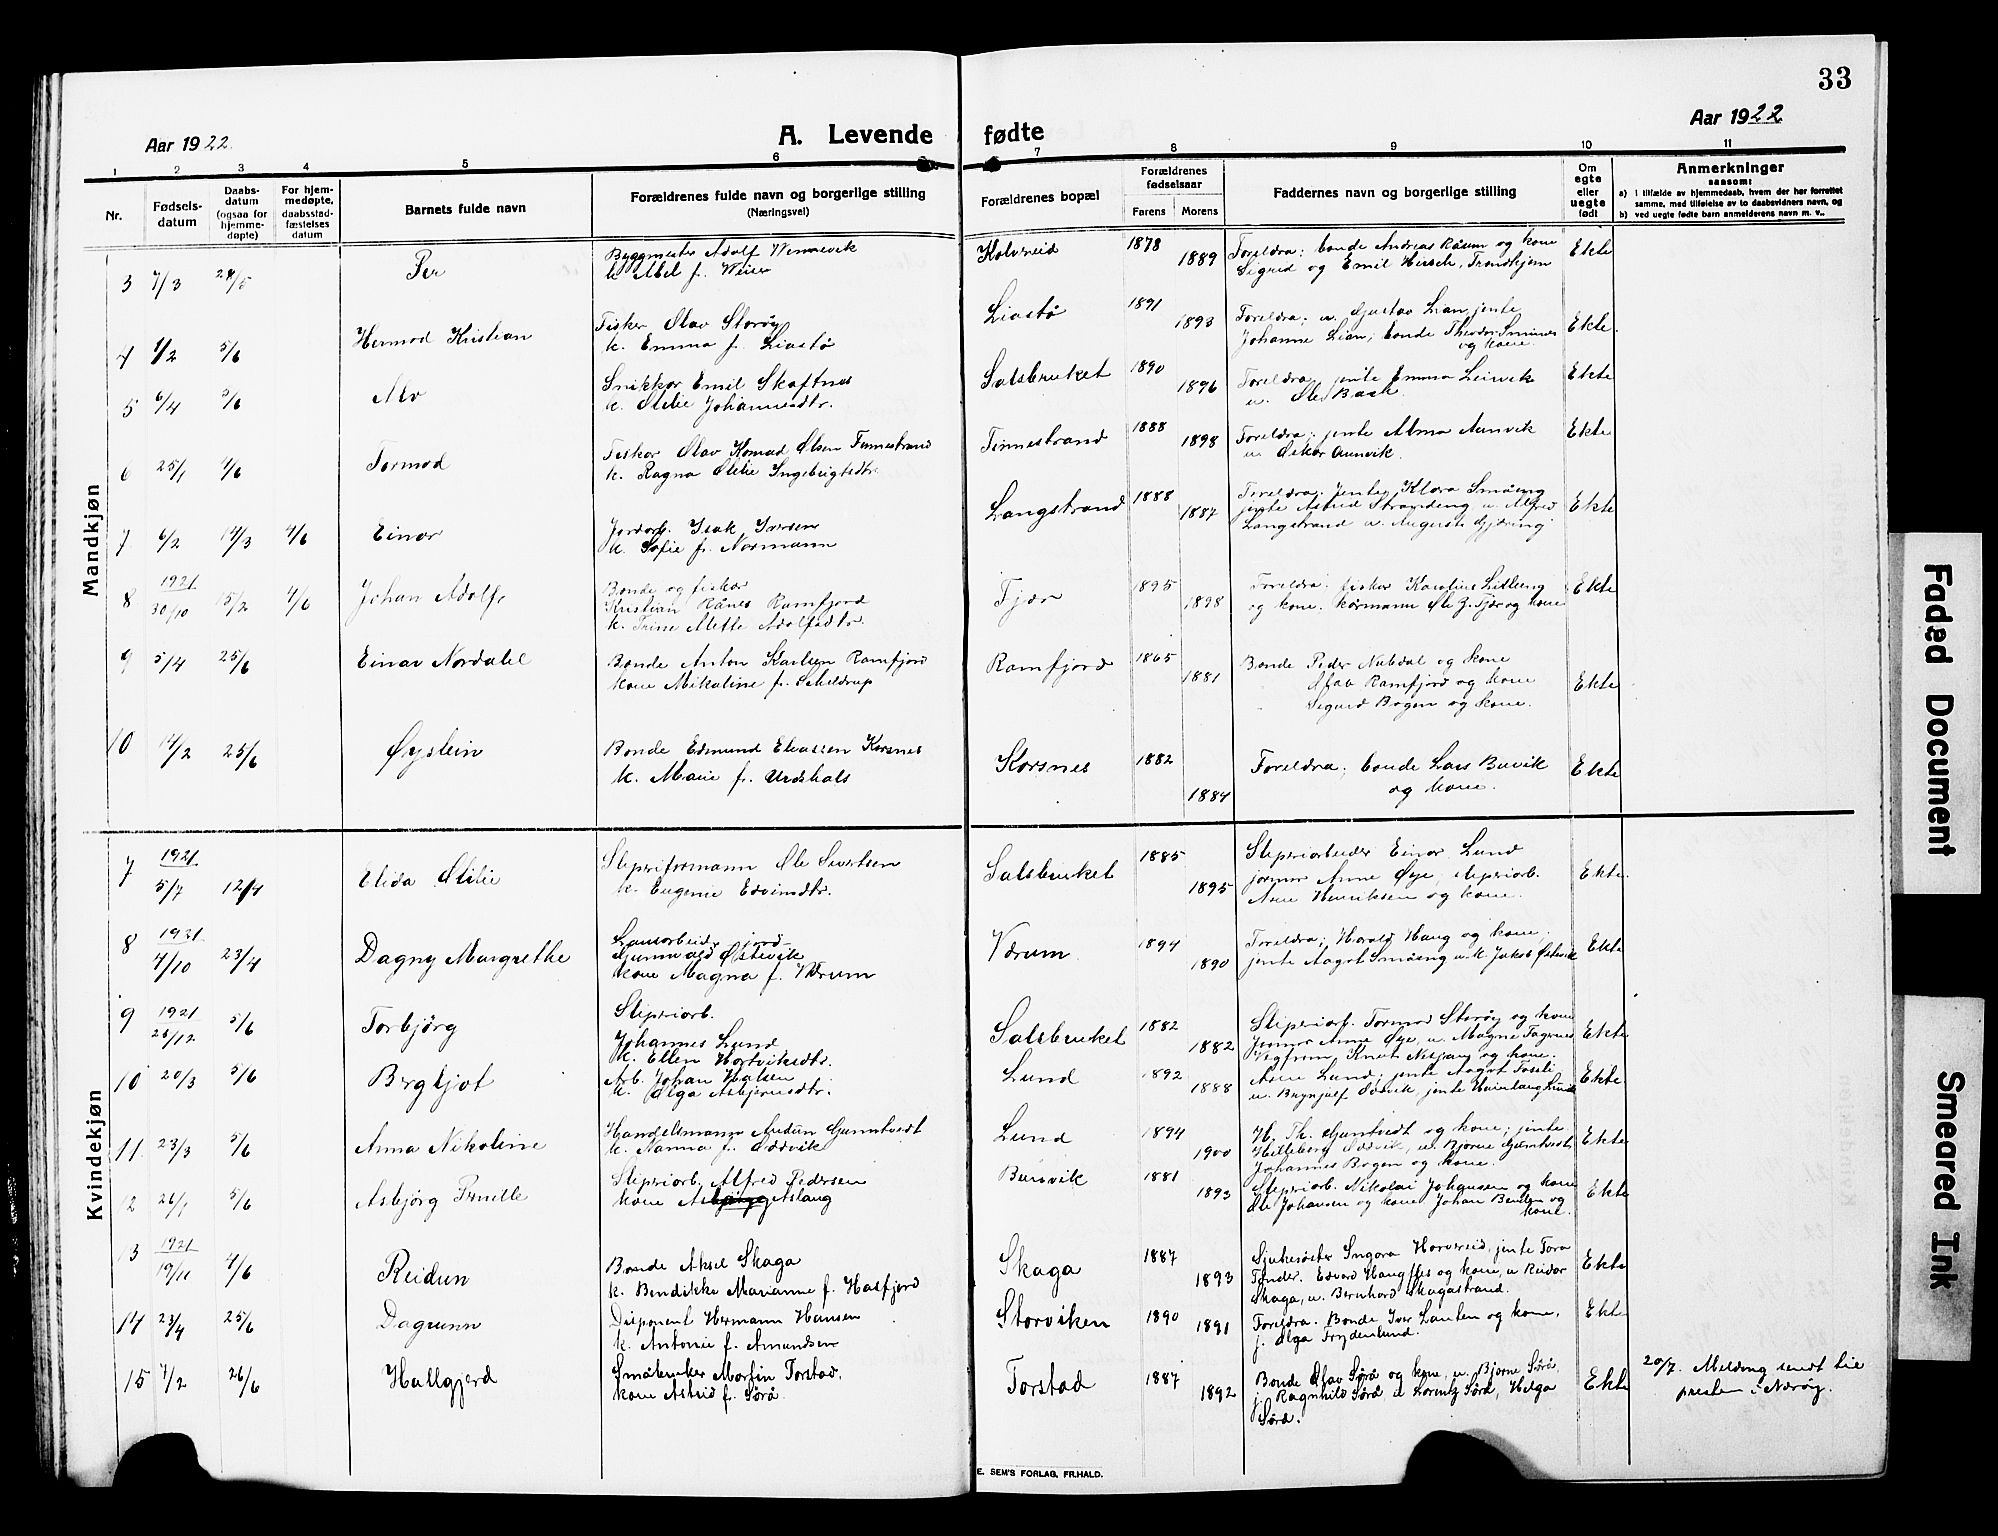 33
Aar 1922
A. Levende fødte
Aar 1922
1 2 3 4 5 6 7 8 9 10 11
Nr.
Fødsels-
datum
Daabs-
datum
(ogsaa for
hjemme-
døpte)
For hjem-
medøpte,
daabsstad-
fæstelses
datum
Barnets fulde navn
Forældrenes fulde navn og borgerlige stilling
(Næringsvei)
Forældrenes bopæl
Forældrenes
fødselsaar
Farens Morens
Faddernes navn og borgerlige stilling
Om
egte
eller
uegte
født
Anmerkninger
saasom:
a) i tilfælde av hjemmedaab, hvem der har forrettet
samme, med tilføielse av to daabsvidners navn, og
b) ved uegte fødte barn anmelderens navn m. v..
Mandkjøn
3 7/3 28/5 Per
Byggmester Adolf Wennevik
k. Abel f. Weier
Kolvereid 1878 1889
Foreldra; bonde Andreas Råum og kone
Sigrid og Emil Hirsch, Trondhjem
Ekte
4 1/2 5/6 Hermod Kristian
Fisker Olav Storøy
k. Emma f. Liastø
Liastø 1891 1893
Foreldra; u. Gustav Lian, jente
Johanne Lian; bonde Theodor
og kone.
Ekte
5 6/4 5/6 Alv
Snikkar Emil Skaftnes
k. Otilie Johannesdtr.
Salsbruket 1890 1896
Foreldra; jente Emma Leirvik
u. Olef Bach.
Ekte
6 25/1 4/6 Tormod
Fisker Olav Konrad Olsen Finnestrand
k. Ragna Otilie Ingebrigtsdtr.
Finnestrand 1888 1898
Foreldra; jente Alma Aunvik
u. Oskar Aunvik.
Ekte
7 6/2 14/3 4/6 Einar
Jordarb. Isak Iversen
k. Sofie f. Normann
Langstrand 1888 1887
Foreldra. Jente Klara Småeng
jente Astrid Strandeng u. Alfred
Langstrand u. August Gjæring
Ekte
8 1921 30/10 15/2 4/6 Johan Adolf
Bonde og fisker
Kristian Rånes Ramfjord
k. Trine Mette Adolfsdtr.
Fjær 1895 1898
Foreldra; fisker Karolius Sitleng
og kone. Ole J. Fjær og kone
Ekte
9 5/4 25/6 Einar Nordahl
Bonde Anton Karlsen Ramfjord
kone Mikaline f. Scheldrup
Ramfjord 1865 1881
Bonde Peder Nubdal og kone
Olav Ramfjord og kone
Sigurd Bogen og kone.
Ekte
10 14/2 25/6 Øystein
Bonde Edmund Eliassen Korsnes
k. Marie f. Urdshals
Korsnes 1882 1884
Foreldra; bonde Lars Buvik
og kone.
Ekte
Kvindekjøn
7 1921 5/7 12/4 Elida Otilie
Sliperiformann Ole Sivertsen
k. Eugenie Edvindtr.
Salsbruket 1885 1895
Sliperiarbeider Einar Lund
jormor Anne Øye, sliperiarb.
Arne Henriksen og kone.
Ekte
8 1921 4/10 23/4 Dagny Margrethe
Lausarbeider, jord-
Gunnvald Østevik
kone Magna f. Værum
Værum 1894 1890
Foreldra; Harald Haug og kone;
jente Aagot Småeng u.k. Jakob Østevik
Ekte
9 1921 26/12 5/6 Torbjörg
Sliperiarb.
Johannes Lund
k. Ellen Hartviksdtr.
Salsbruket 1882 1882
Sliperiarb. Tormod Storøy og kone
Jormor Anne Øye, u. Magne Fagernes
Knut og kone.
Ekte
10 20/3 5/6 Bergljot
Arb. Johan Halsen
k. Olga Asbjørnsdtr.
Lund 1892 1888
Arne Lund; jente Aagot
u. Brynjulf Oddvik, jente Lund
Ekte
11 23/3 5/6 Anna Nikoline
Handelsmann Audun Gunhvedt
k. Nanna f. Oddvik
Lund 1894 1900
H. Th. Gunhvedt og kone; jente
Hilleberg Oddvik, u. Bjarne Gunhvedt
Johannes Bogen og kone.
Ekte
12 26/1 5/6 Asbjörg Pernille
Sliperiarb. Alfred Pedersen
kone Aslaug
Bursvik 1881 1893
Sliperiarb. Nikolai Johansen og kone
Ole Johansen og kone Johan Benden og
kone.
Ekte
13 1921 19/11 4/6 Reidun
Bonde Aksel Skaga
k. Bendikke Marianne f. Hasfjord
Skaga 1887 1893
Sjukesøster Ingora Horvereid, jente Tora
Tender. Edvard Haugftes og kone, u. Reidar
Skaga, u. Bernhard Skagastrand.
Ekte
14 23/4 25/6 Dagrunn
Disponent Hermann Hansen
k. Antonie f. Amundsen
Storviken 1890 1891
Foreldra. Bonde Iver Lauten og kone,
j. Olga Frydenlund.
Ekte
15 7/2 26/6 Hallgjerd
Småbruker Martin Torstad,
kone Astrid f. Sörå
Torstad 1887 1892
Bonde Olav Sörå og kone, u. Bjarne Sörå
j. Ragnhild Sörå, u. Lorentz Sörå, Helga
Sörå.
Ekte
20/7. Melding sendt til
presten i Nærøy.
E. SEM'S FORLAG, FR.HALD.
Faded Document
Smeared Ink